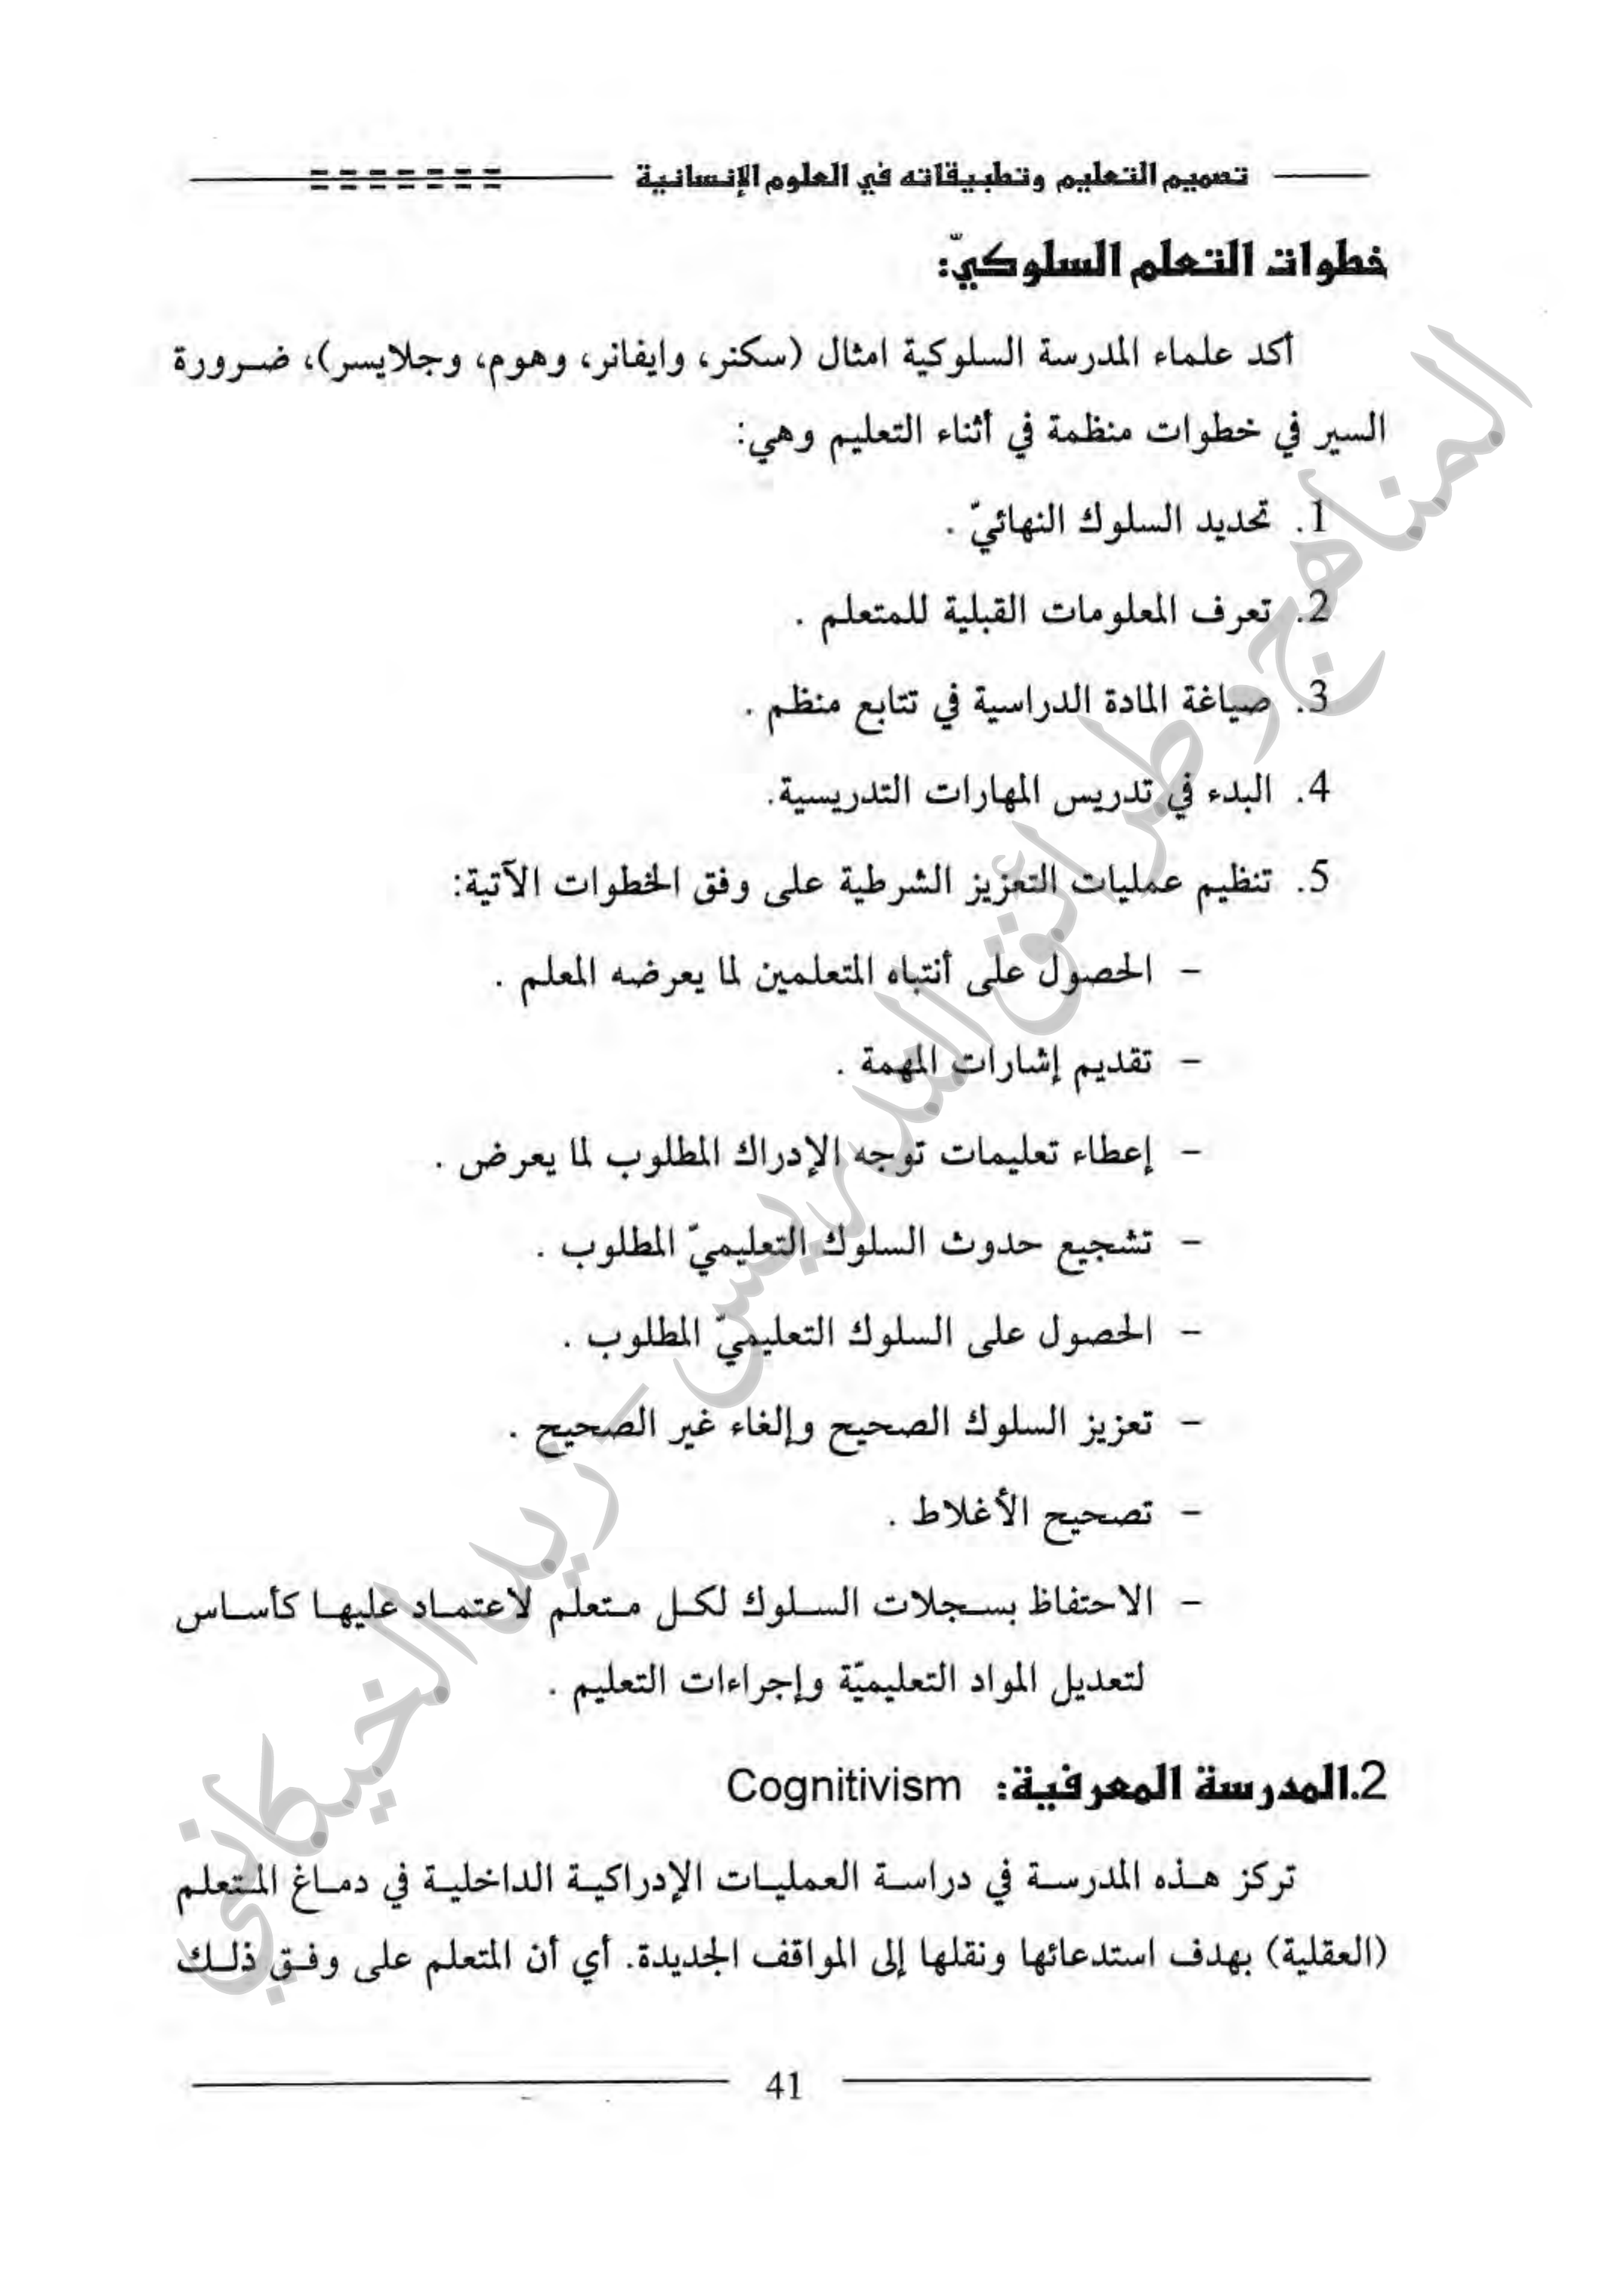 تصميم التعليم وتطبيقاته في العلوم الإنسانية
خطوات التعلم السلوكيّ:
أكد علماء المدرسة السلوكية امثال (سكنر، وايفانر، وهوم، وجلايسر)، ضرورة
السير في خطوات منظمة في أثناء التعليم وهي:
1. تحديد السلوك النهائيّ .
2. تعرف المعلومات القبلية للمتعلم .
3. صياغة المادة الدراسية في تتابع منظم .
4. البدء في تدريس المهارات التدريسية.
5. تنظيم عمليات التعزيز الشرطية على وفق الخطوات الآتية:
- الحصول على أنتباه المتعلمين لما يعرضه المعلم .
- تقديم إشارات المهمة .
- إعطاء تعليمات توجه الإدراك المطلوب لما يعرض .
- تشجيع حدوث السلوك التعليميّ المطلوب .
- الحصول على السلوك التعليميّ المطلوب .
- تعزيز السلوك الصحيح وإلغاء غير الصحيح .
- تصحيح الأغلاط .
- الاحتفاظ بسجلات السلوك لكل متعلم لاعتماد عليها كأساس
لتعديل المواد التعليميّة وإجراءات التعليم .
2.المدرسة المعرفية: Cognitivism
تركز هذه المدرسة في دراسة العمليات الإدراكية الداخلية في دماغ المتعلم
(العقلية) بهدف استدعائها ونقلها إلى المواقف الجديدة. أي أن المتعلم على وفق ذلك
41
المناهج وطرائق التدريس - زيد الخيكاني